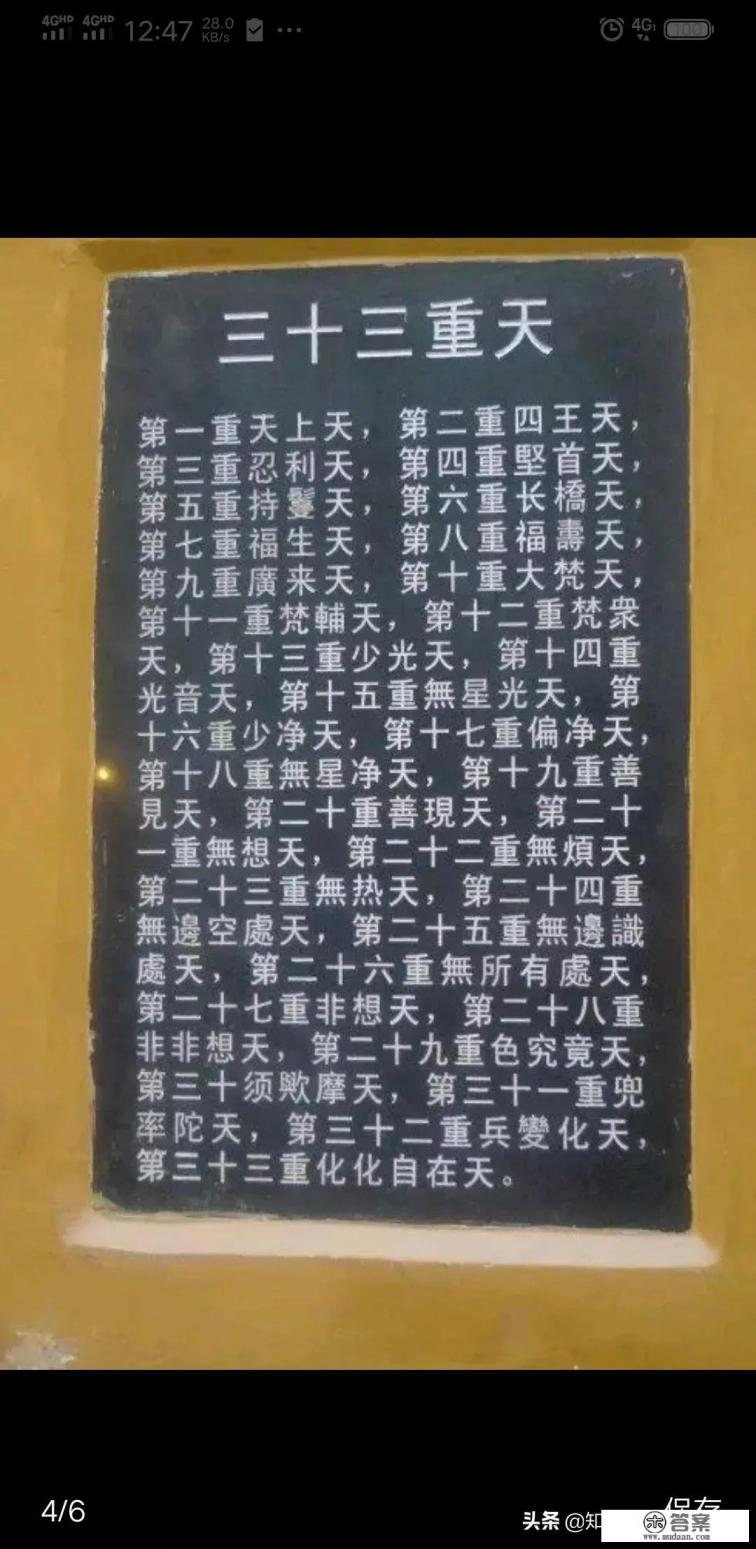 4GHD 4GHD 12:47 28.0 KB/s ... 4G 100
三十三重天
第一重天上天，第二重四王天，
第三重忍利天，第四重堅首天，
第五重持鬘天，第六重长橋天，
第七重福生天，第八重福壽天，
第九重廣来天，第十重大梵天，
第十一重梵輔天，第十二重梵衆
天，第十三重少光天，第十四重
光音天，第十五重無星光天，第
十六重少净天，第十七重偏净天，
第十八重無星净天，第十九重善
見天，第二十重善現天，第二十
一重無想天，第二十二重無煩天，
第二十三重無热天，第二十四重
無邊空處天，第二十五重無邊識
處天，第二十六重無所有處天，
第二十七重非想天，第二十八重
非非想天，第二十九重色究竟天，
第三十须歟摩天，第三十一重兜
率陀天，第三十二重兵變化天，
第三十三重化化自在天。
4/6
保存
头条 @知
答案
www.mudaan.com